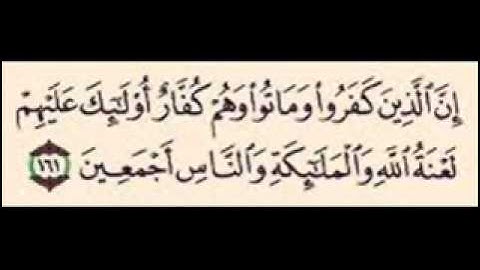 إِنَّ ٱلَّذِينَ كَفَرُوا۟ وَمَاتُوا۟ وَهُمْ كُفَّارٌ أُو۟لَـٰٓئِكَ عَلَيْهِمْ
لَعْنَةُ ٱللَّهِ وَٱلْمَلَـٰٓئِكَةِ وَٱلنَّاسِ أَجْمَعِينَ ١٦١